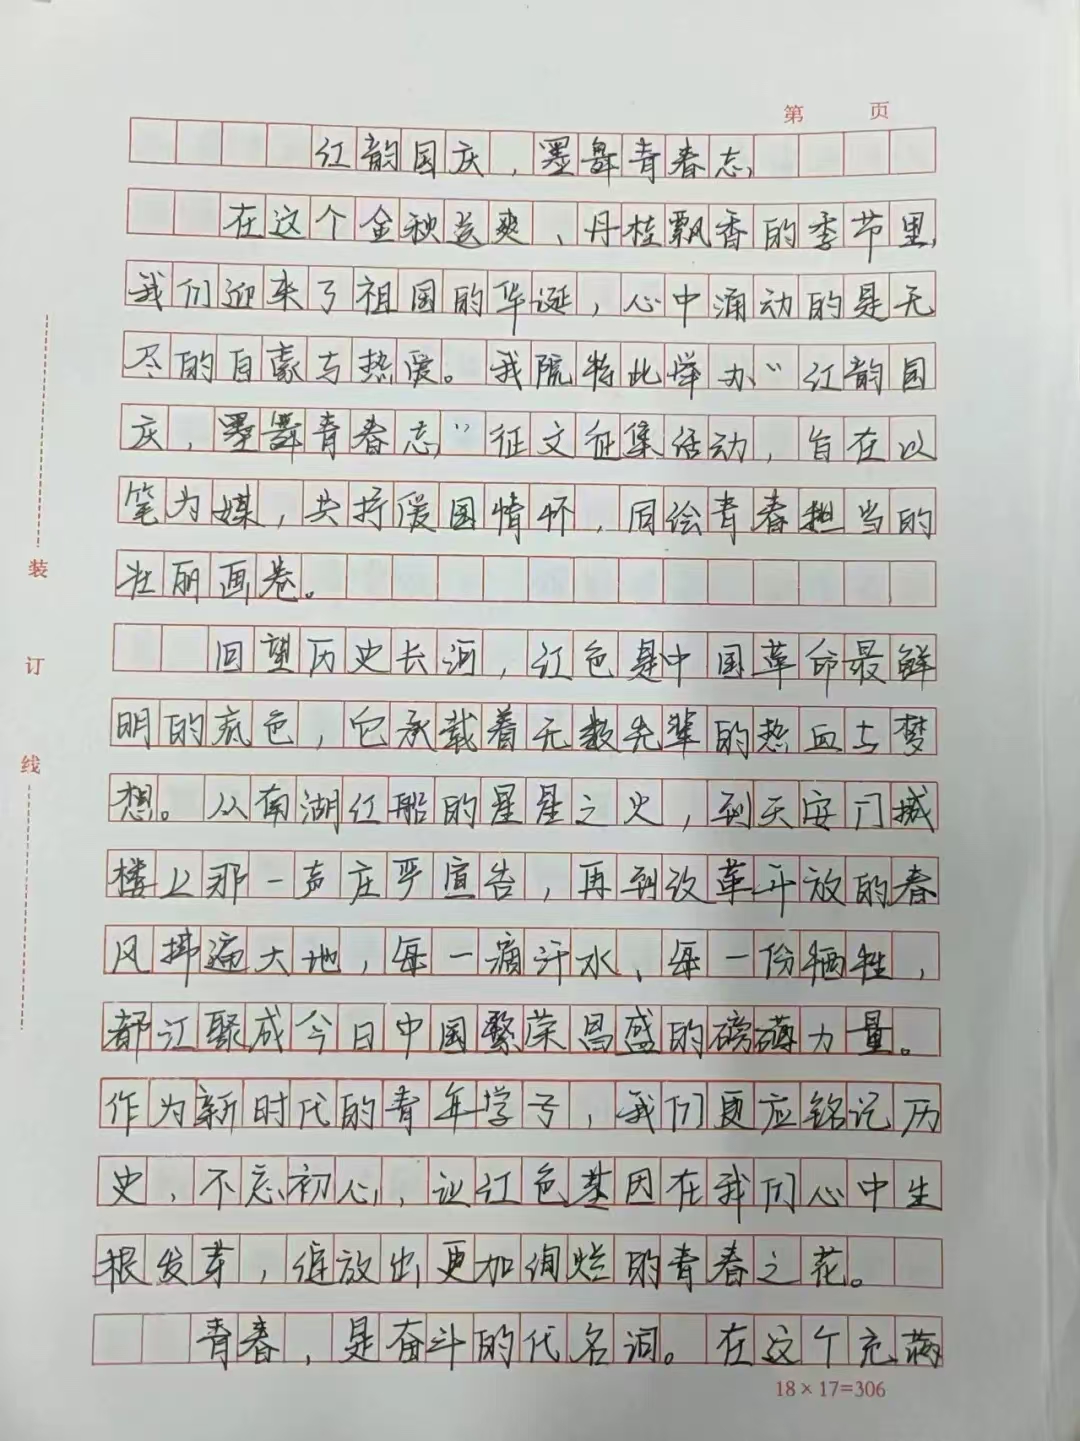 第 页
红韵国庆,墨舞青春志
在这个金秋送爽、丹桂飘香的季节里,
我们迎来了祖国的华诞,心中涌动的是无
尽的自豪与热爱。我院特此举办“红韵国
庆,墨舞青春志”征文征集活动,旨在以
笔为媒,共抒爱国情怀,同绘青春担当的
壮丽画卷。
回望历史长河,红色是中国革命最鲜
明的底色,它承载着无数先辈的热血与梦
想。从南湖红船的星星之火,到天安门城
楼上那一声庄严宣告,再到改革开放的春
风拂遍大地,每一滴汗水、每一份牺牲,
都汇聚成今日中国繁荣昌盛的磅礴力量。
作为新时代的青年学子,我们更应铭记历
史,不忘初心,让红色基因在我们心中生
根发芽,绽放出更加绚烂的青春之花。
青春,是奋斗的代名词。在这个充满
18×17=306
装
订
线